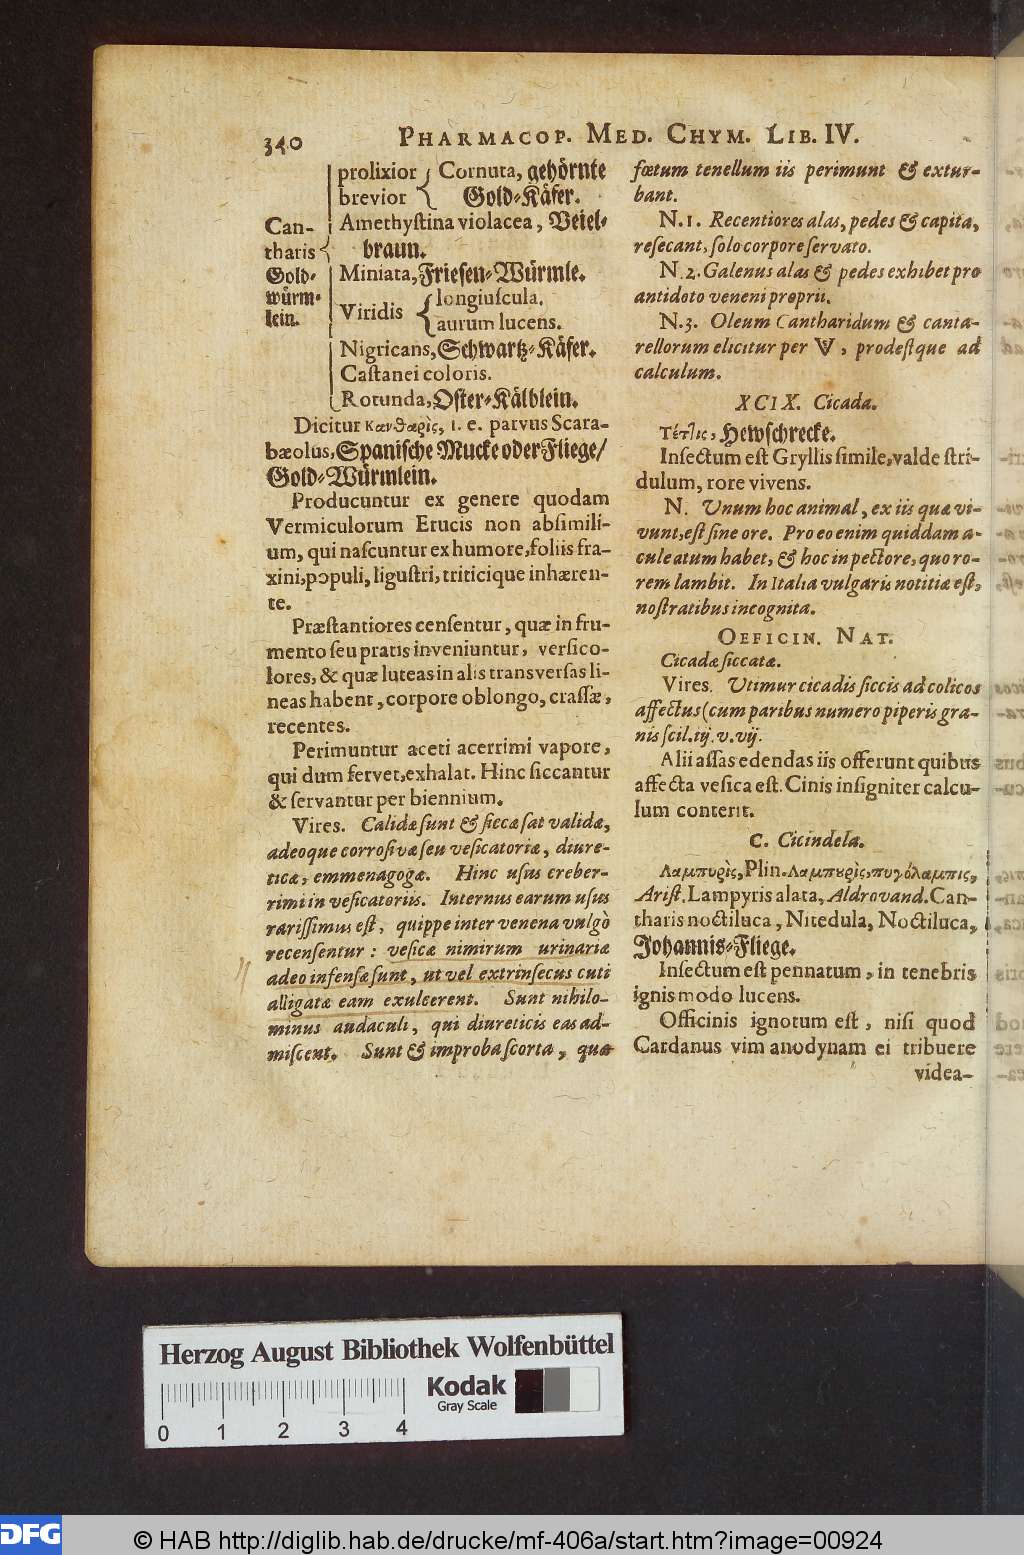 340 PHARMACOP. MED. CHYM. LIB. IV.
prolixior Cornuta, gehörnte
brevior Gold-Käfer.
Amethystina violacea, Veiel-
braun.
Can-
tharis
Gold-
würm-
lein.
Miniata, Friesen-Würmle.
Viridis longiuscula.
aurum lucens.
Nigricans, Schwartz-Käfer.
Castanei coloris.
Rotunda, Oster-Kälblein.
Dicitur κανθαρὶς, i. e. parvus Scara-
bæolus, Spanische Mucke oder Fliege/
Gold-Würmlein.
Producuntur ex genere quodam
Vermiculorum Erucis non absimili-
um, qui nascuntur ex humore, foliis fra-
xini, populi, ligustri, triticique inhæren-
te.
Præstantiores censentur, quæ in fru-
mento seu pratis inveniuntur, versico-
lores, & quæ luteas in alis transversas li-
neas habent, corpore oblongo, crassæ,
recentes.
Perimuntur aceti acerrimi vapore,
qui dum fervet, exhalat. Hinc siccantur
& servantur per biennium.
Vires. Calidæ sunt & siccæ sat validæ,
adeoque corrosivæ seu vesicatoriæ, diure-
ticæ, emmenagogæ. Hinc usus creber-
rimi in vesicatoriis. Internus earum usus
rarissimus est, quippe inter venena vulgò
recensentur: vesicæ nimirum urinariæ
adeo infensæ sunt, ut vel extrinsecus cuti
alligatæ eam exulcerent. Sunt nihilo-
minus audaculi, qui diureticis eas ad-
miscent. Sunt & improba scorta, quæ
fœtum tenellum iis perimunt & extur-
bant.
N. 1. Recentiores alas, pedes & capita,
resecant, solo corpore servato.
N. 2. Galenus alas & pedes exhibet pro
antidoto veneni proprii.
N. 3. Oleum Cantharidum & canta-
rellorum elicitur per , prodestque ad
calculum.
XCIX. Cicada.
Τέτ]ις, Hewschrecke.
Insectum est Gryllis simile, valde stri-
dulum, rore vivens.
N. Unum hoc animal, ex iis quæ vi-
vunt, est sine ore. Pro eo enim quiddam a-
culeatum habet, & hoc in pectore, quo ro-
rem lambit. In Italia vulgaris notitiæ est,
nostratibus incognita.
OFFICIN. NAT.
Cicadæ siccatæ.
Vires. Utimur cicadis siccis ad colicos
affectus (cum paribus numero piperis gra-
nis scil. iij. v. vij.
Alii assas edendas iis offerunt quibus
affecta vesica est. Cinis insigniter calcu-
lum conterit.
C. Cicindela.
Λαμπυρὶς, Plin. Λαμπυρὶς, πυγόλαμπις,
Arist. Lampyris alata, Aldrovand. Can-
tharis noctiluca, Nitedula, Noctiluca,
Johannis-Fliege.
Insectum est pennatum, in tenebris
ignis modo lucens.
Officinis ignotum est, nisi quod
Cardanus vim anodynam ei tribuere
videa-
Herzog August Bibliothek Wolfenbüttel
Kodak
Gray Scale
0 1 2 3 4
DFG
© HAB http://diglib.hab.de/drucke/mf-406a/start.htm?image=00924